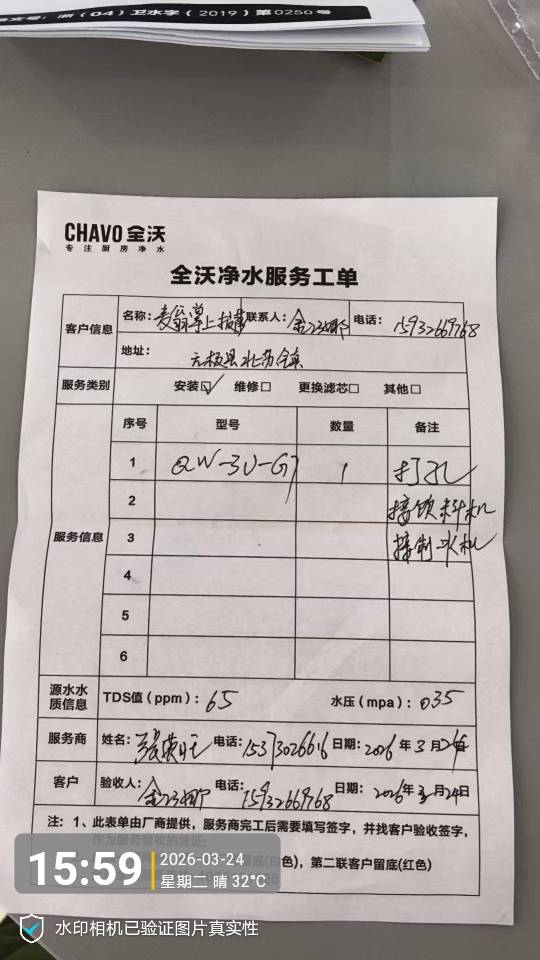 浙（04）卫水字（2019）第0250号
CHAVO 全沃
专注厨房净水
全沃净水服务工单
客户信息 名称： 联系人： 电话：15932669768
地址：元氏县北苏镇
服务类别 安装☑ 维修□ 更换滤芯□ 其他□
服务信息 序号 型号 数量 备注
1 QW-3U-G7 1 打孔
2 接饮料机
3 接制冰机
4
5
6
源水水质信息 TDS值（ppm）：65 水压（mpa）：035
服务商 姓名： 电话：15373026616 日期：2026年3月24日
客户 验收人： 电话：15932669768 日期：2026年3月24日
注：1、此表单由厂商提供，服务商完工后需要填写签字，并找客户验收签字，
作为服务验收的凭证；
留底(白色)，第二联客户留底(红色)
15:59
2026-03-24
星期二 晴 32°C
水印相机已验证图片真实性